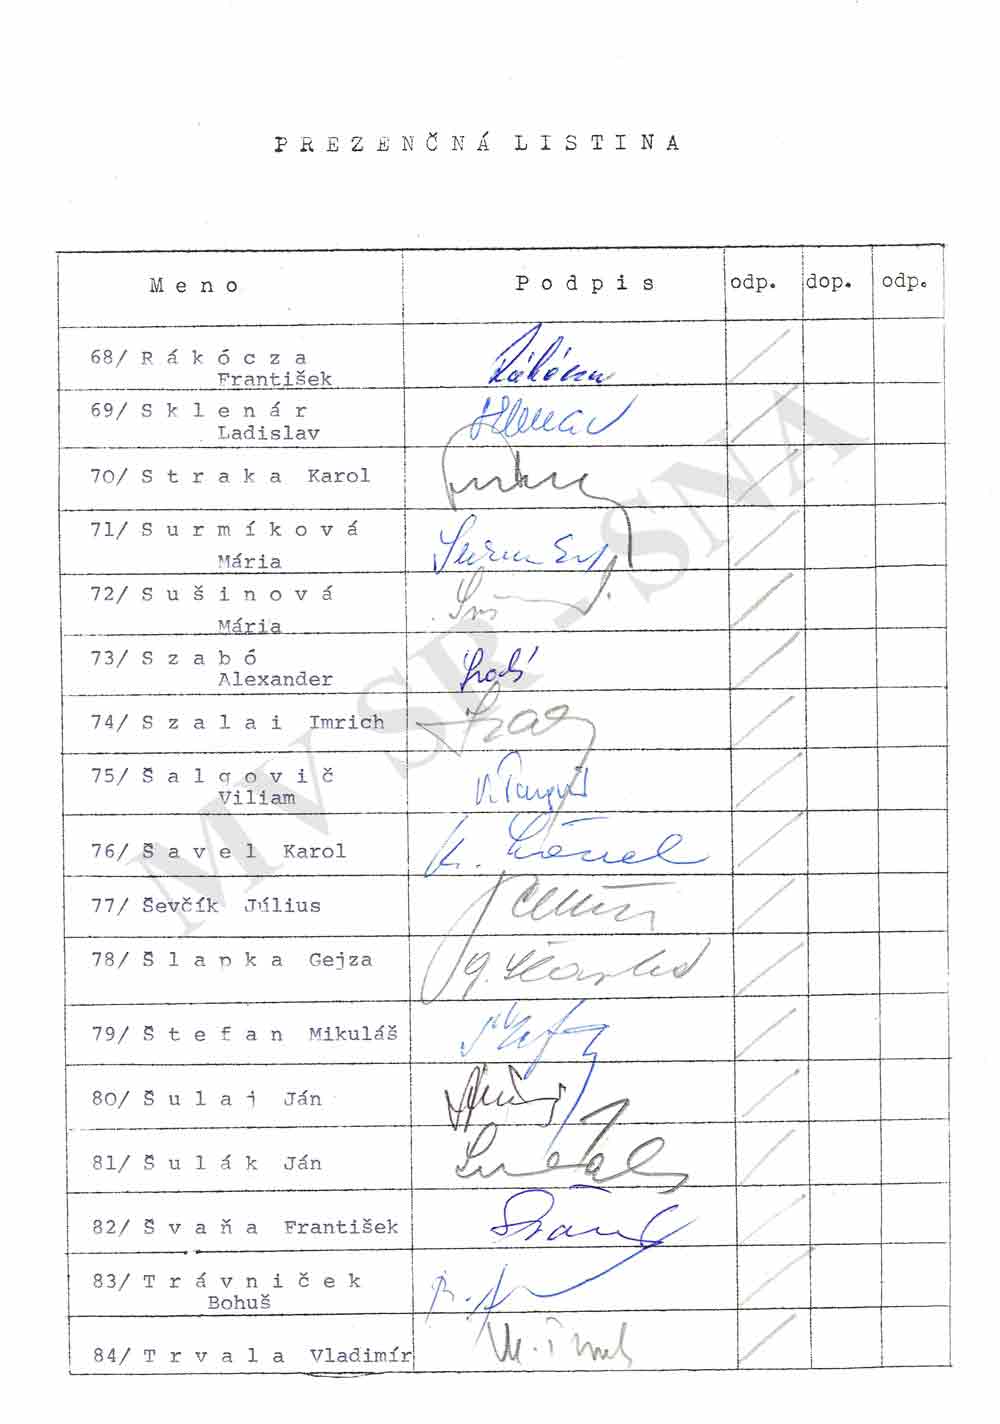 PREZENČNÁ LISTINA
Meno Podpis odp. dop. odp.
68/ Rákócza
František
69/ Sklenár
Ladislav
70/ Straka Karol
71/ Surmíková
Mária
72/ Sušinová
Mária
73/ Szabó
Alexander
74/ Szalai Imrich
75/ Šalgovič
Viliam
76/ Šavel Karol
77/ Ševčík Július
78/ Šlapka Gejza
79/ Štefan Mikuláš
80/ Šulaj Ján
81/ Šulák Ján
82/ Švaňa František
83/ Trávniček
Bohuš
84/ Trvala Vladimír
MV SR - SNA